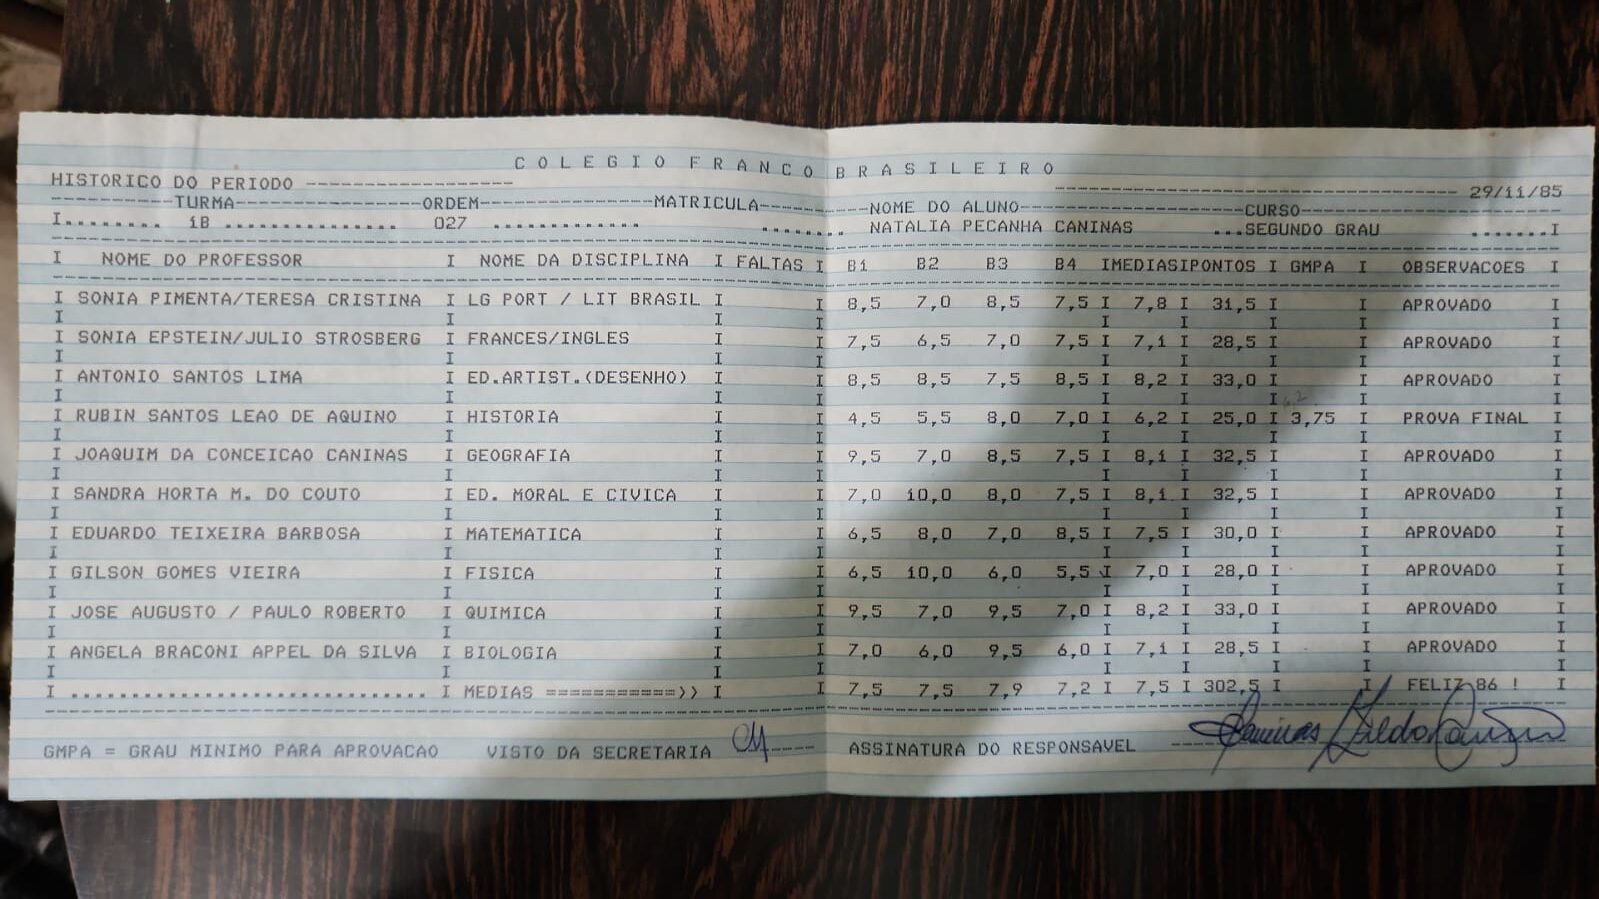 COLEGIO FRANCO BRASILEIRO
HISTORICO DO PERIODO ------------------- ------------------------------------------ 29/11/85
-----------TURMA----------------ORDEM-----------------MATRICULA------------NOME DO ALUNO------------------------CURSO----------------------
I......... 1B ............... 027 ............. ........ NATALIA PECANHA CANINAS ...SEGUNDO GRAU .......I
I NOME DO PROFESSOR I NOME DA DISCIPLINA I FALTAS I B1 B2 B3 B4 IMEDIASIPONTOS I GMPA I OBSERVACOES I
I SONIA PIMENTA/TERESA CRISTINA I LG PORT / LIT BRASIL I I 8,5 7,0 8,5 7,5 I 7,8 I 31,5 I I APROVADO I
I SONIA EPSTEIN/JULIO STROSBERG I FRANCES/INGLES I I 7,5 6,5 7,0 7,5 I 7,1 I 28,5 I I APROVADO I
I ANTONIO SANTOS LIMA I ED.ARTIST.(DESENHO) I I 8,5 8,5 7,5 8,5 I 8,2 I 33,0 I I APROVADO I
I RUBIN SANTOS LEAO DE AQUINO I HISTORIA I I 4,5 5,5 8,0 7,0 I 6,2 I 25,0 I 3,75 I PROVA FINAL I
I JOAQUIM DA CONCEICAO CANINAS I GEOGRAFIA I I 9,5 7,0 8,5 7,5 I 8,1 I 32,5 I I APROVADO I
I SANDRA HORTA M. DO COUTO I ED. MORAL E CIVICA I I 7,0 10,0 8,0 7,5 I 8,1 I 32,5 I I APROVADO I
I EDUARDO TEIXEIRA BARBOSA I MATEMATICA I I 6,5 8,0 7,0 8,5 I 7,5 I 30,0 I I APROVADO I
I GILSON GOMES VIEIRA I FISICA I I 6,5 10,0 6,0 5,5 I 7,0 I 28,0 I I APROVADO I
I JOSE AUGUSTO / PAULO ROBERTO I QUIMICA I I 9,5 7,0 9,5 7,0 I 8,2 I 33,0 I I APROVADO I
I ANGELA BRACONI APPEL DA SILVA I BIOLOGIA I I 7,0 6,0 9,5 6,0 I 7,1 I 28,5 I I APROVADO I
I ............................... I MEDIAS ===========>> I I 7,5 7,5 7,9 7,2 I 7,5 I 302,5 I I FELIZ 86 ! I
GMPA = GRAU MINIMO PARA APROVACAO VISTO DA SECRETARIA ----- ASSINATURA DO RESPONSAVEL --- Caninas